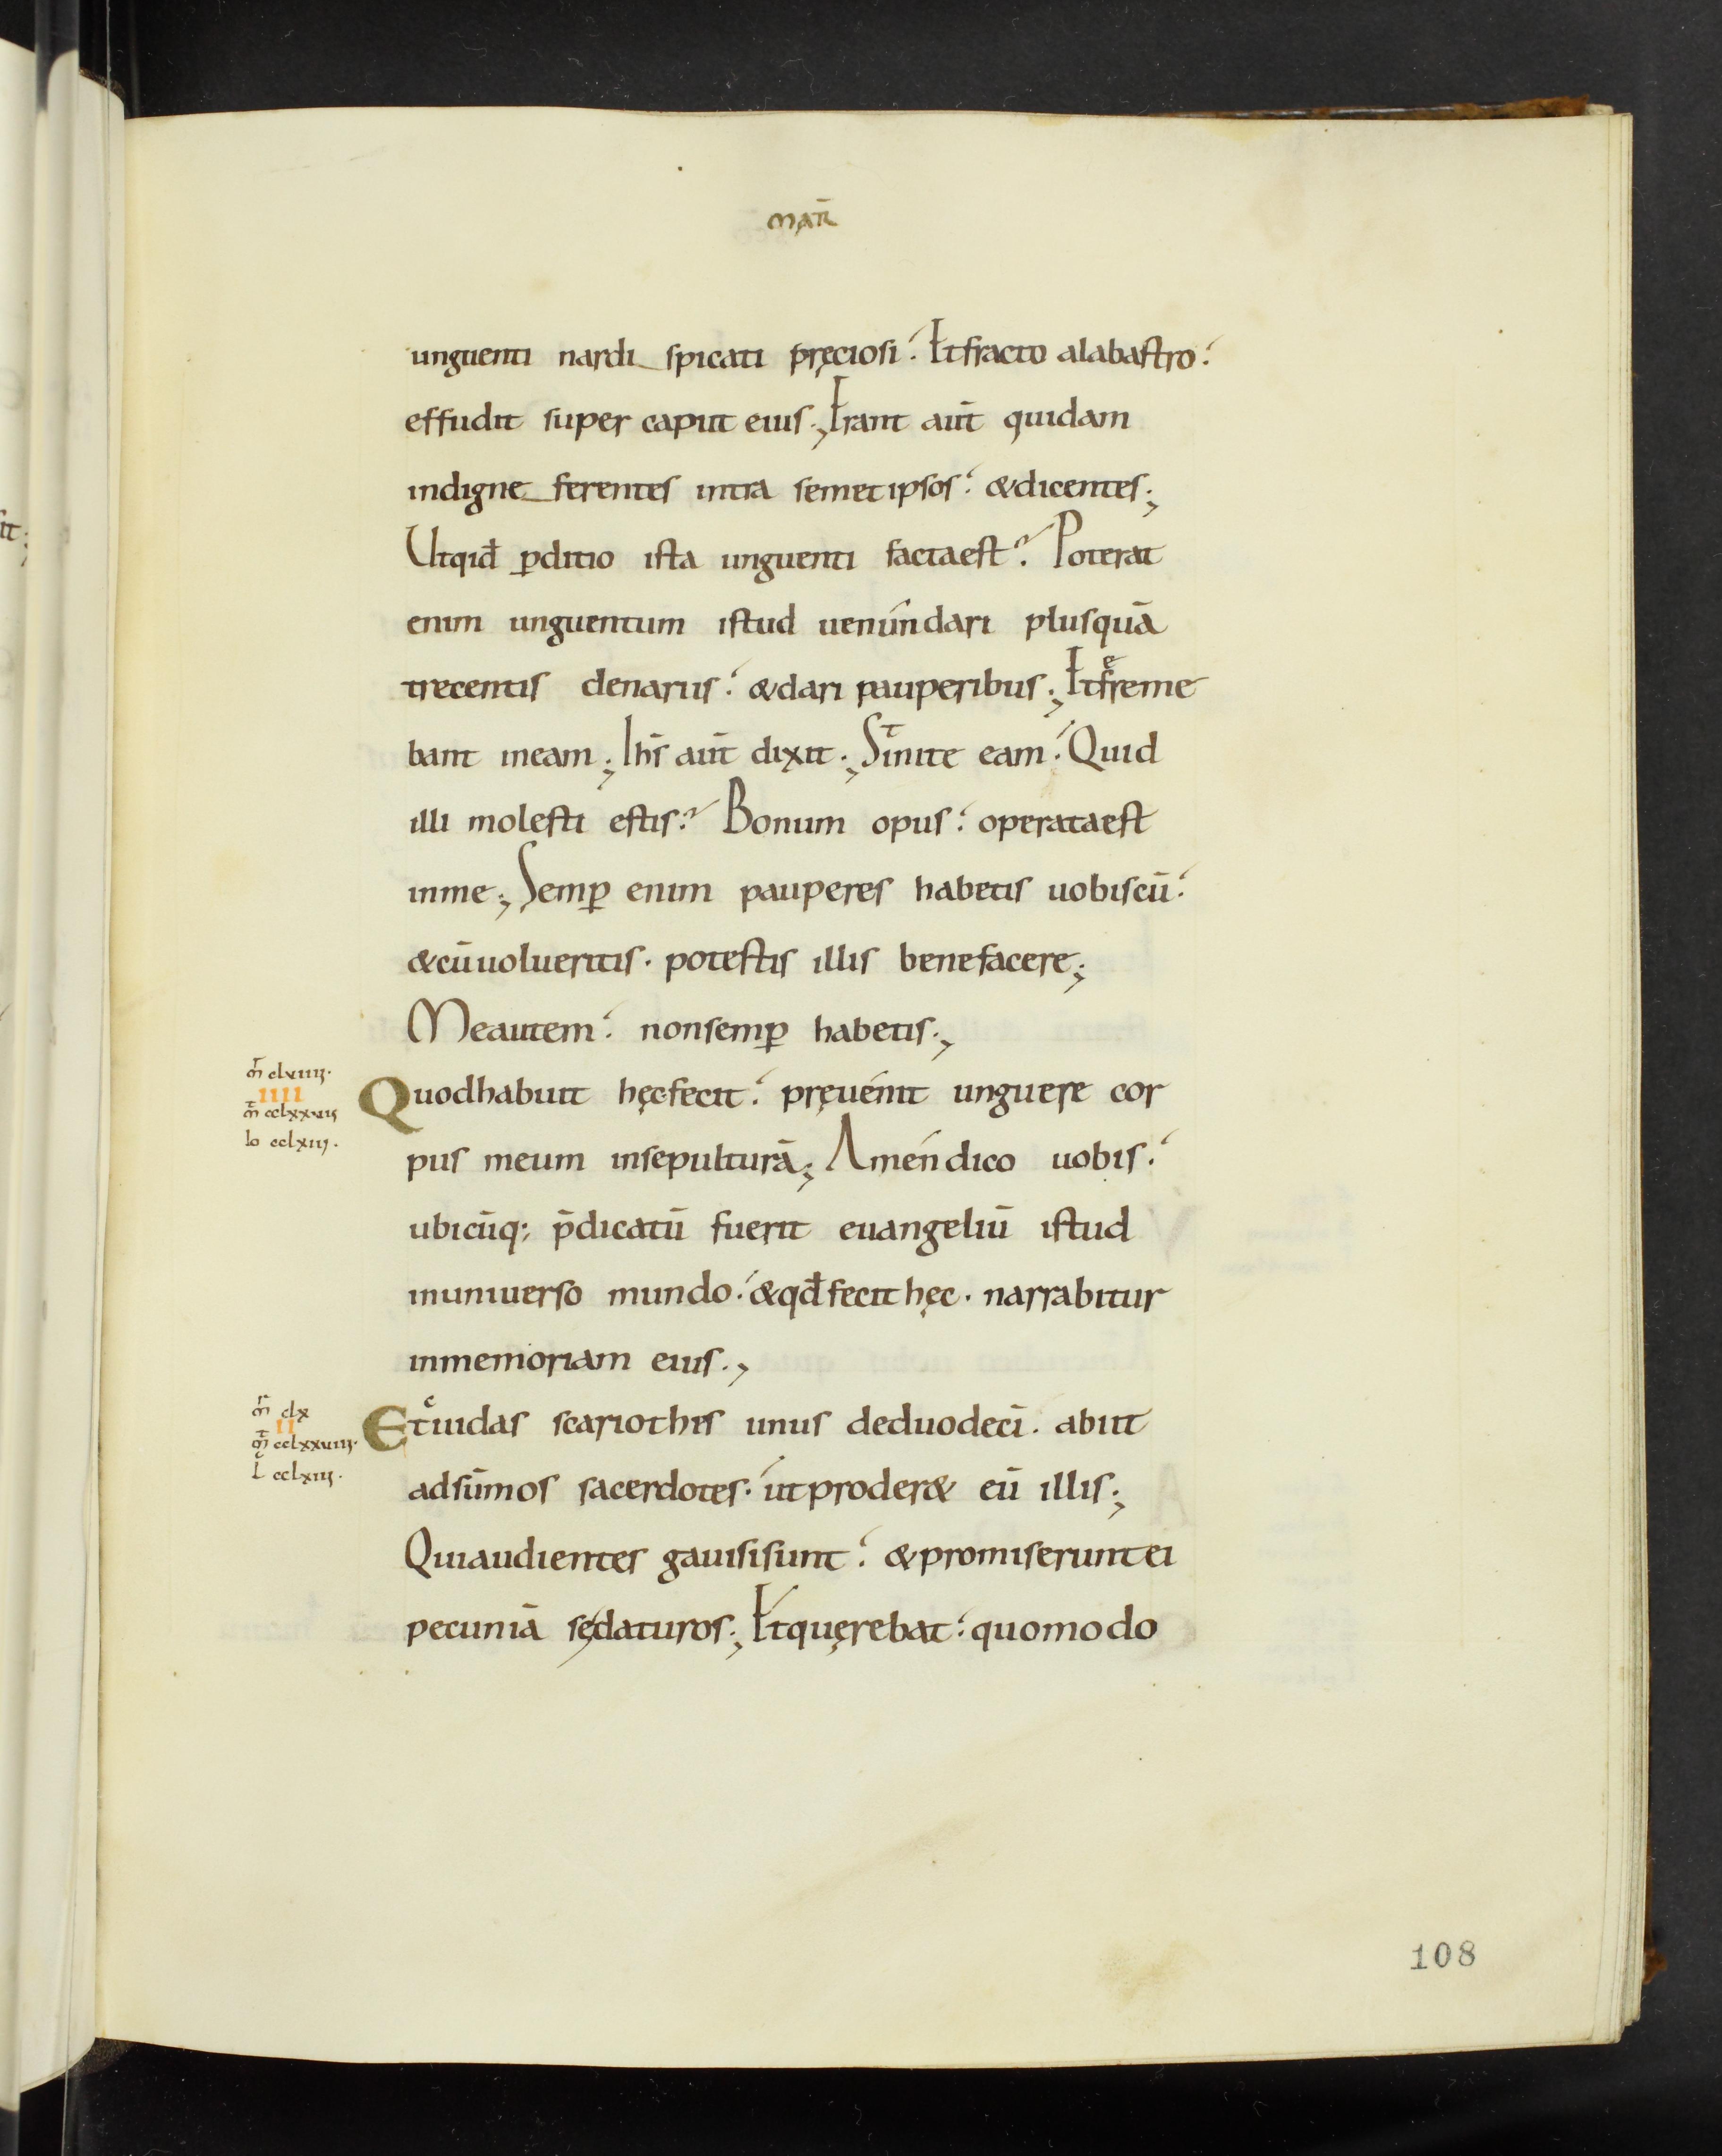 MAR̄
unguenti nardi spicati pręciosi. Et fracto alabastro.
effudit super caput eius; Erant aut̄ quidam
indigne ferentes intra semetipsos. & dicentes;
Ut qid̄ ꝑditio ista unguenti facta est? Poterat
enim unguentum istud uenúndari plus quā
trecentis denariis. & dari pauperibus; Et freme
bant in eam; Ihs̄ aut̄ dixit; Sinite eam. Quid
illi molesti estis? Bonum opus. operata est
in me; Semꝑ enim pauperes habetis uobiscū.
& cū uolueritis. potestis illis benefacere;
Me autem. non semꝑ habetis.,
m̄ clviiii.
IIII
m̄ cclxxvii
Io cclxiii.
Quod habuit hęc fecit. pręuénit unguere cor
pus meum in sepulturā; Amén dico uobis.
ubicūq; p̄dicatū fuerit euangeliū istud
in uniuerso mundo. & qd̄ fecit hęc. narrabitur
in memoriam eius.,
m̄ clx
II
m̄ cclxxviii.
L cclxiii.
Et iudas scariothis unus de duodecī. abiit
ad sūmos sacerdotes. ut proder& eū illis;
Qui audientes gauisi sunt. & promiserunt ei
pecuniā sę daturos; Et quęrebat. quomodo
108